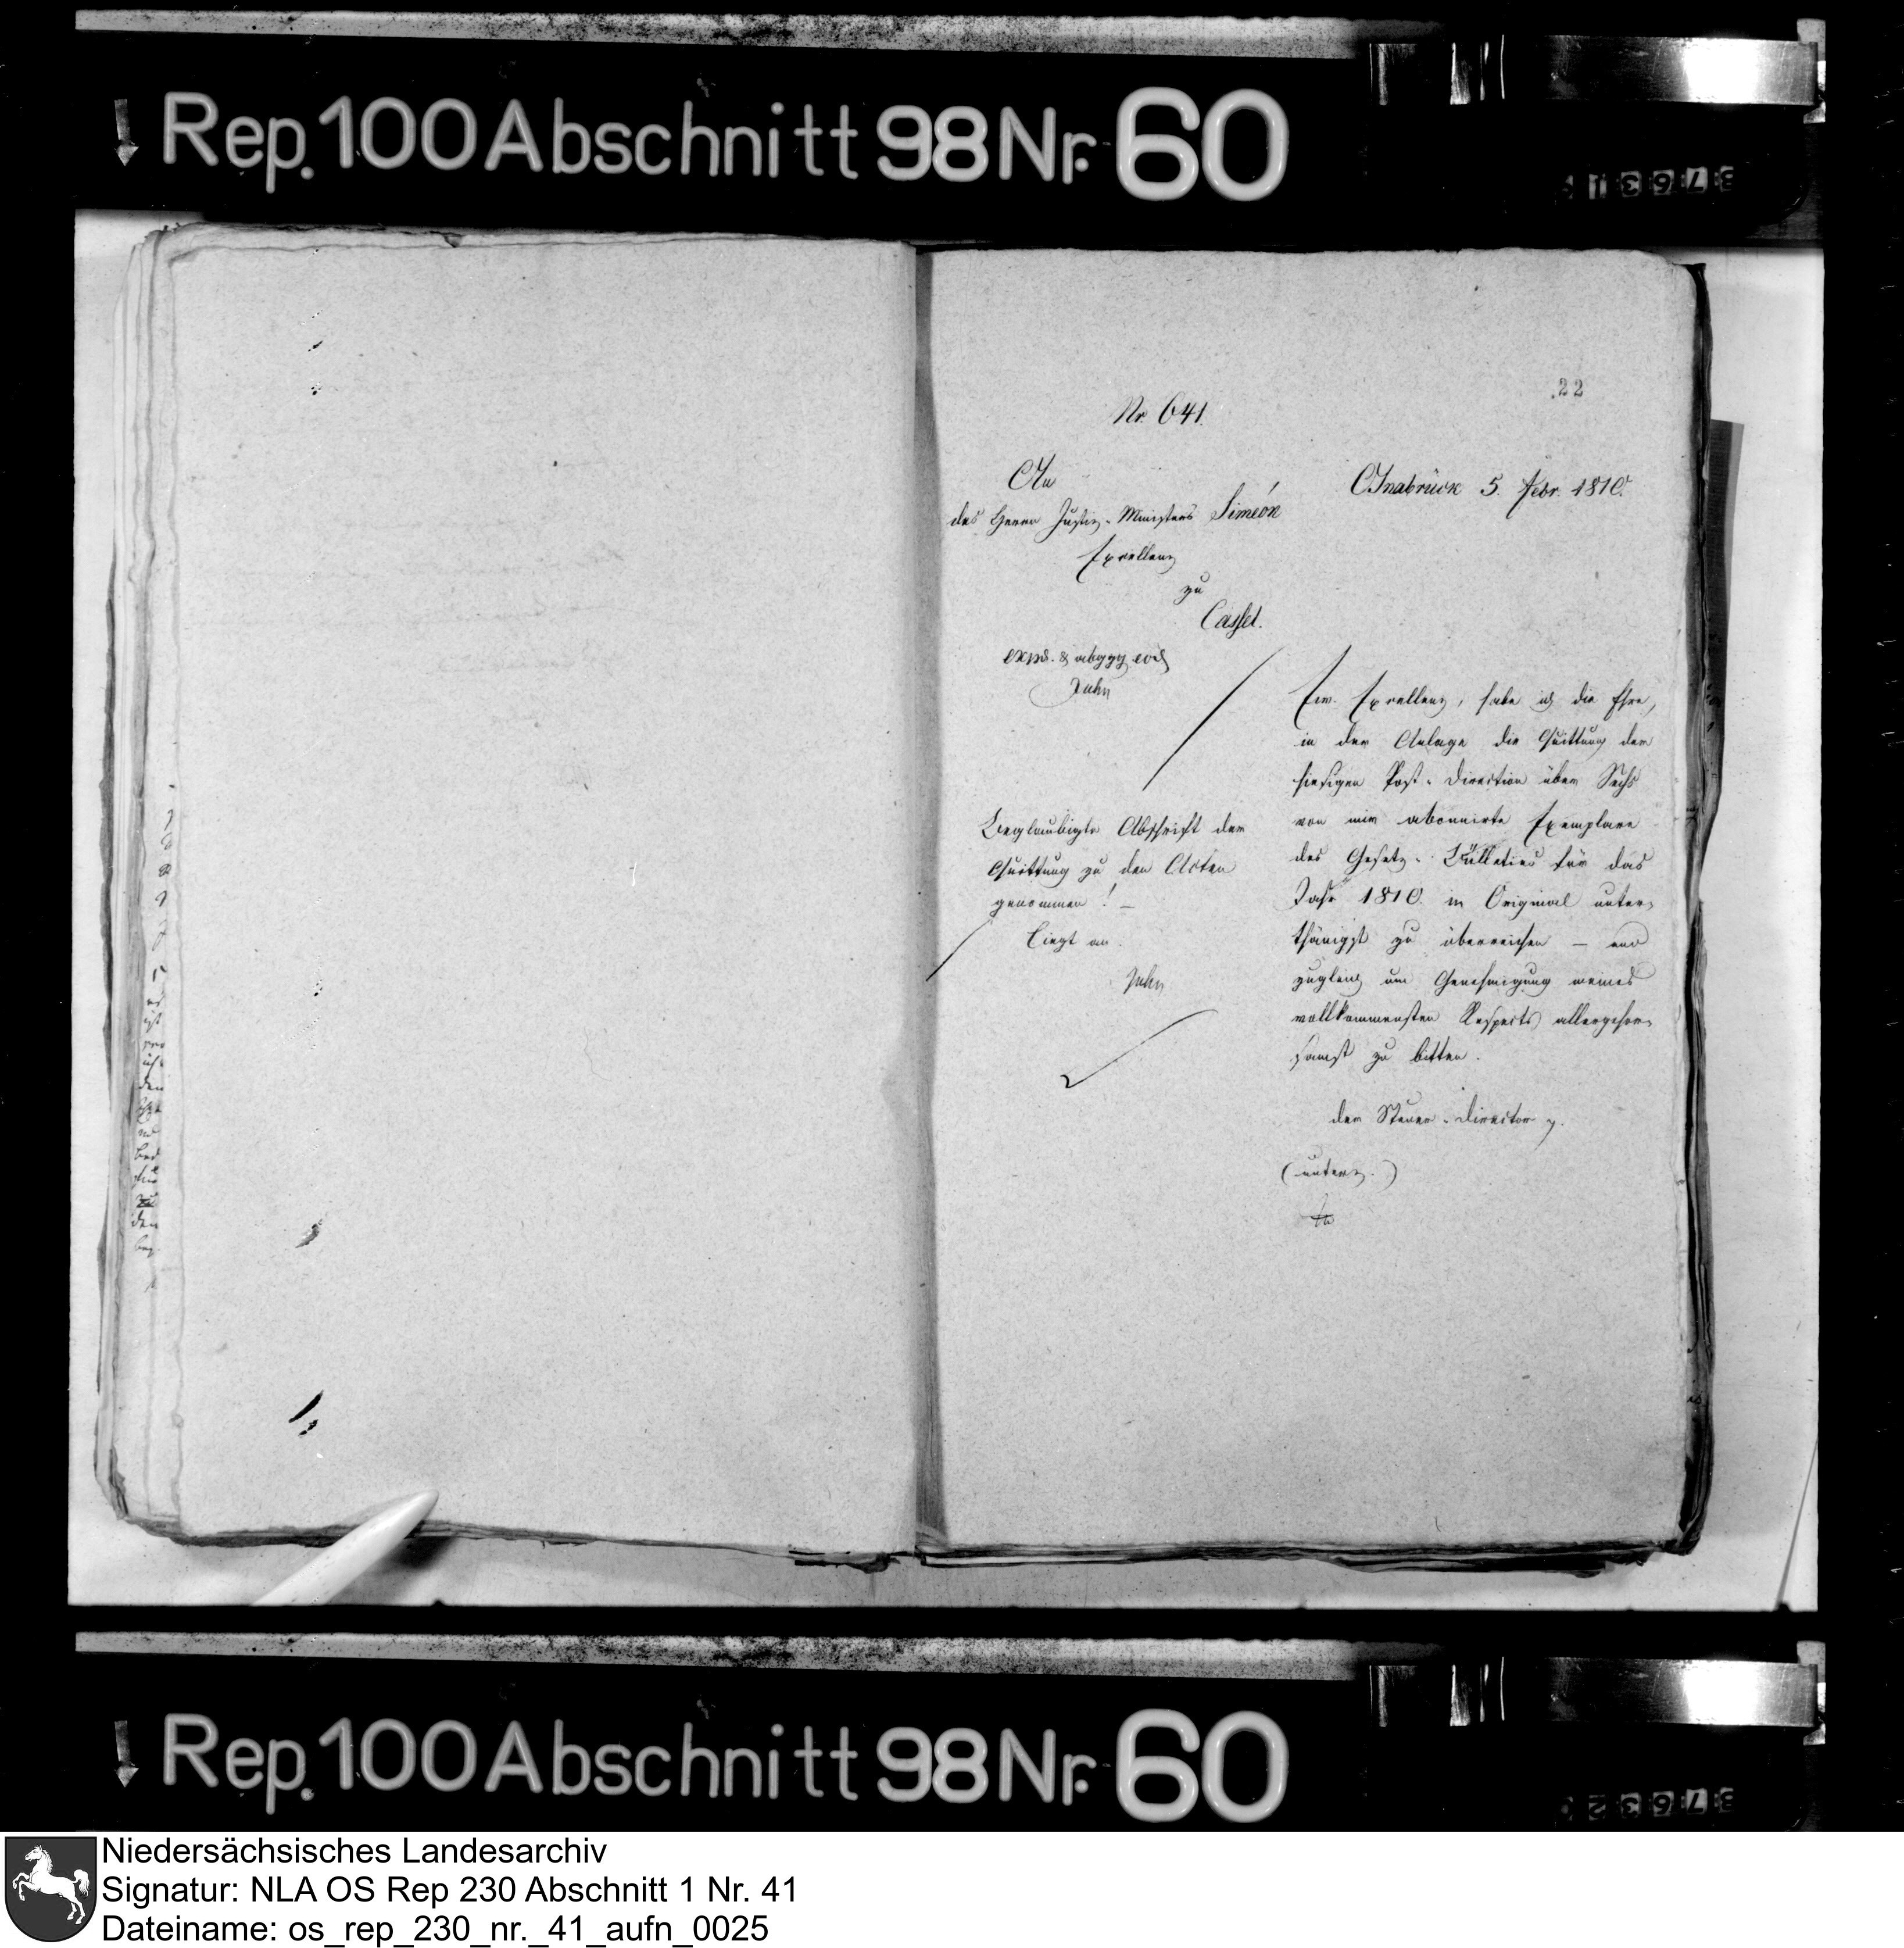 Rep. 100 Abschnitt 98 Nr. 60
22
Nr. 641.
An
des Herrn Justiz-Ministers Siméon
Excellenz
zu
Cassel.
Osnabrück 5. Febr. 1810.
exped. & abggg eod
Jahn
Ew. Excellenz, habe ich die Ehre,
in der Anlage die Quittung der
hiesigen Post-Direction über Sechs
von mir abonnirte Exemplare
des Gesetz-Bülletins für das
Jahr 1810. in Original unter-
thänigst zu überreichen — und
zugleich um Genehmigung meines
vollkommensten Respects allergehor-
samst zu bitten.
der Steuer-Director
(unterz.)
Beglaubigte Abschrift der
Quittung zu den Acten
genommen! —
Liegt an.
Jahn
Rep. 100 Abschnitt 98 Nr. 60
Niedersächsisches Landesarchiv
Signatur: NLA OS Rep 230 Abschnitt 1 Nr. 41
Dateiname: os_rep_230_nr._41_aufn_0025